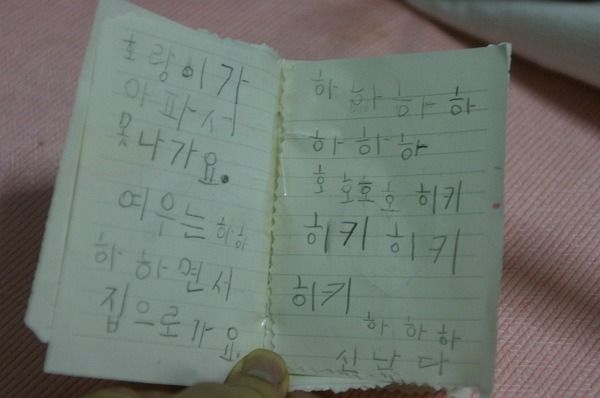 호랑이가
아파서
못나가요.
여우는 하하
하 하 면서
집으로가요
하 하 하 하
하 하 하
호 호호호 히키
히키 히키
히키
하 하 하
신난다